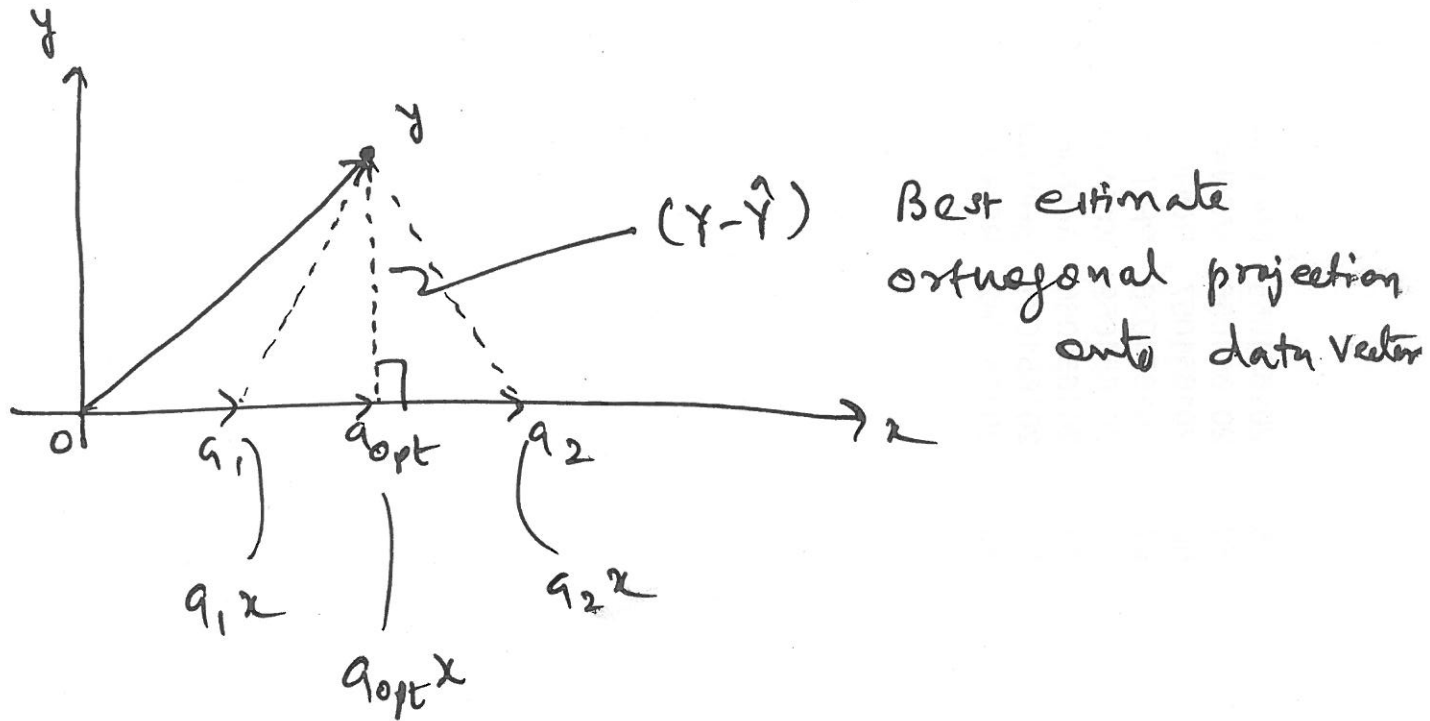 y
y
(Y-Ŷ)
Best estimate
orthogonal projection
onto data vector
0
a₁
a_opt
a₂
x
a₁x
a₂x
a_opt x